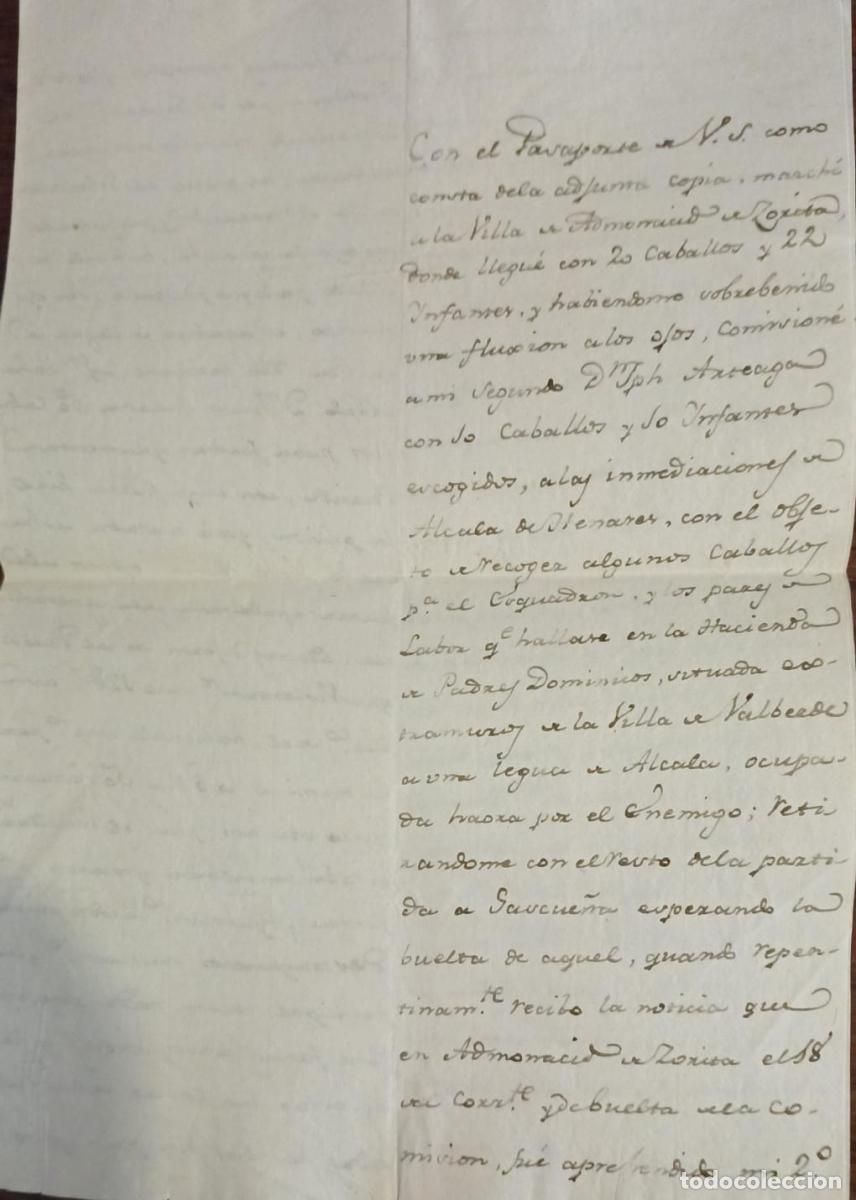 Con el Pasaporte de V. S. como
consta dela adjunta copia, marché
a la Villa de Admonacid de Zorita,
donde llegué con 20 Caballos y 22
Ynfantes, y habiendome sobrebenido
una fluxion a los ojos, Comisioné
a mi Segundo Dn. Jph Arteaga
con 10 Caballos y 10 Ynfantes
escogidos, a las inmediaciones de
Alcala de Henares, con el obje-
to de recoger algunos Caballos
pa. el Esquadron, y los pares de
Labor qe. hallase en la Hacienda
de Padres Dominicos, situada ex-
tramuros de la Villa de Valberde
a una legua de Alcala, ocupa-
da haora por el Enemigo; reti
randome con el resto dela parti
da a Gascueña esperando la
buelta de aquel, quando repen-
tinam.te recibo la noticia que
en Admonacid de Zorita el 18
de Corr.te y de buelta de la Co-
mision, fué aprehendido mi 2º
todocoleccion